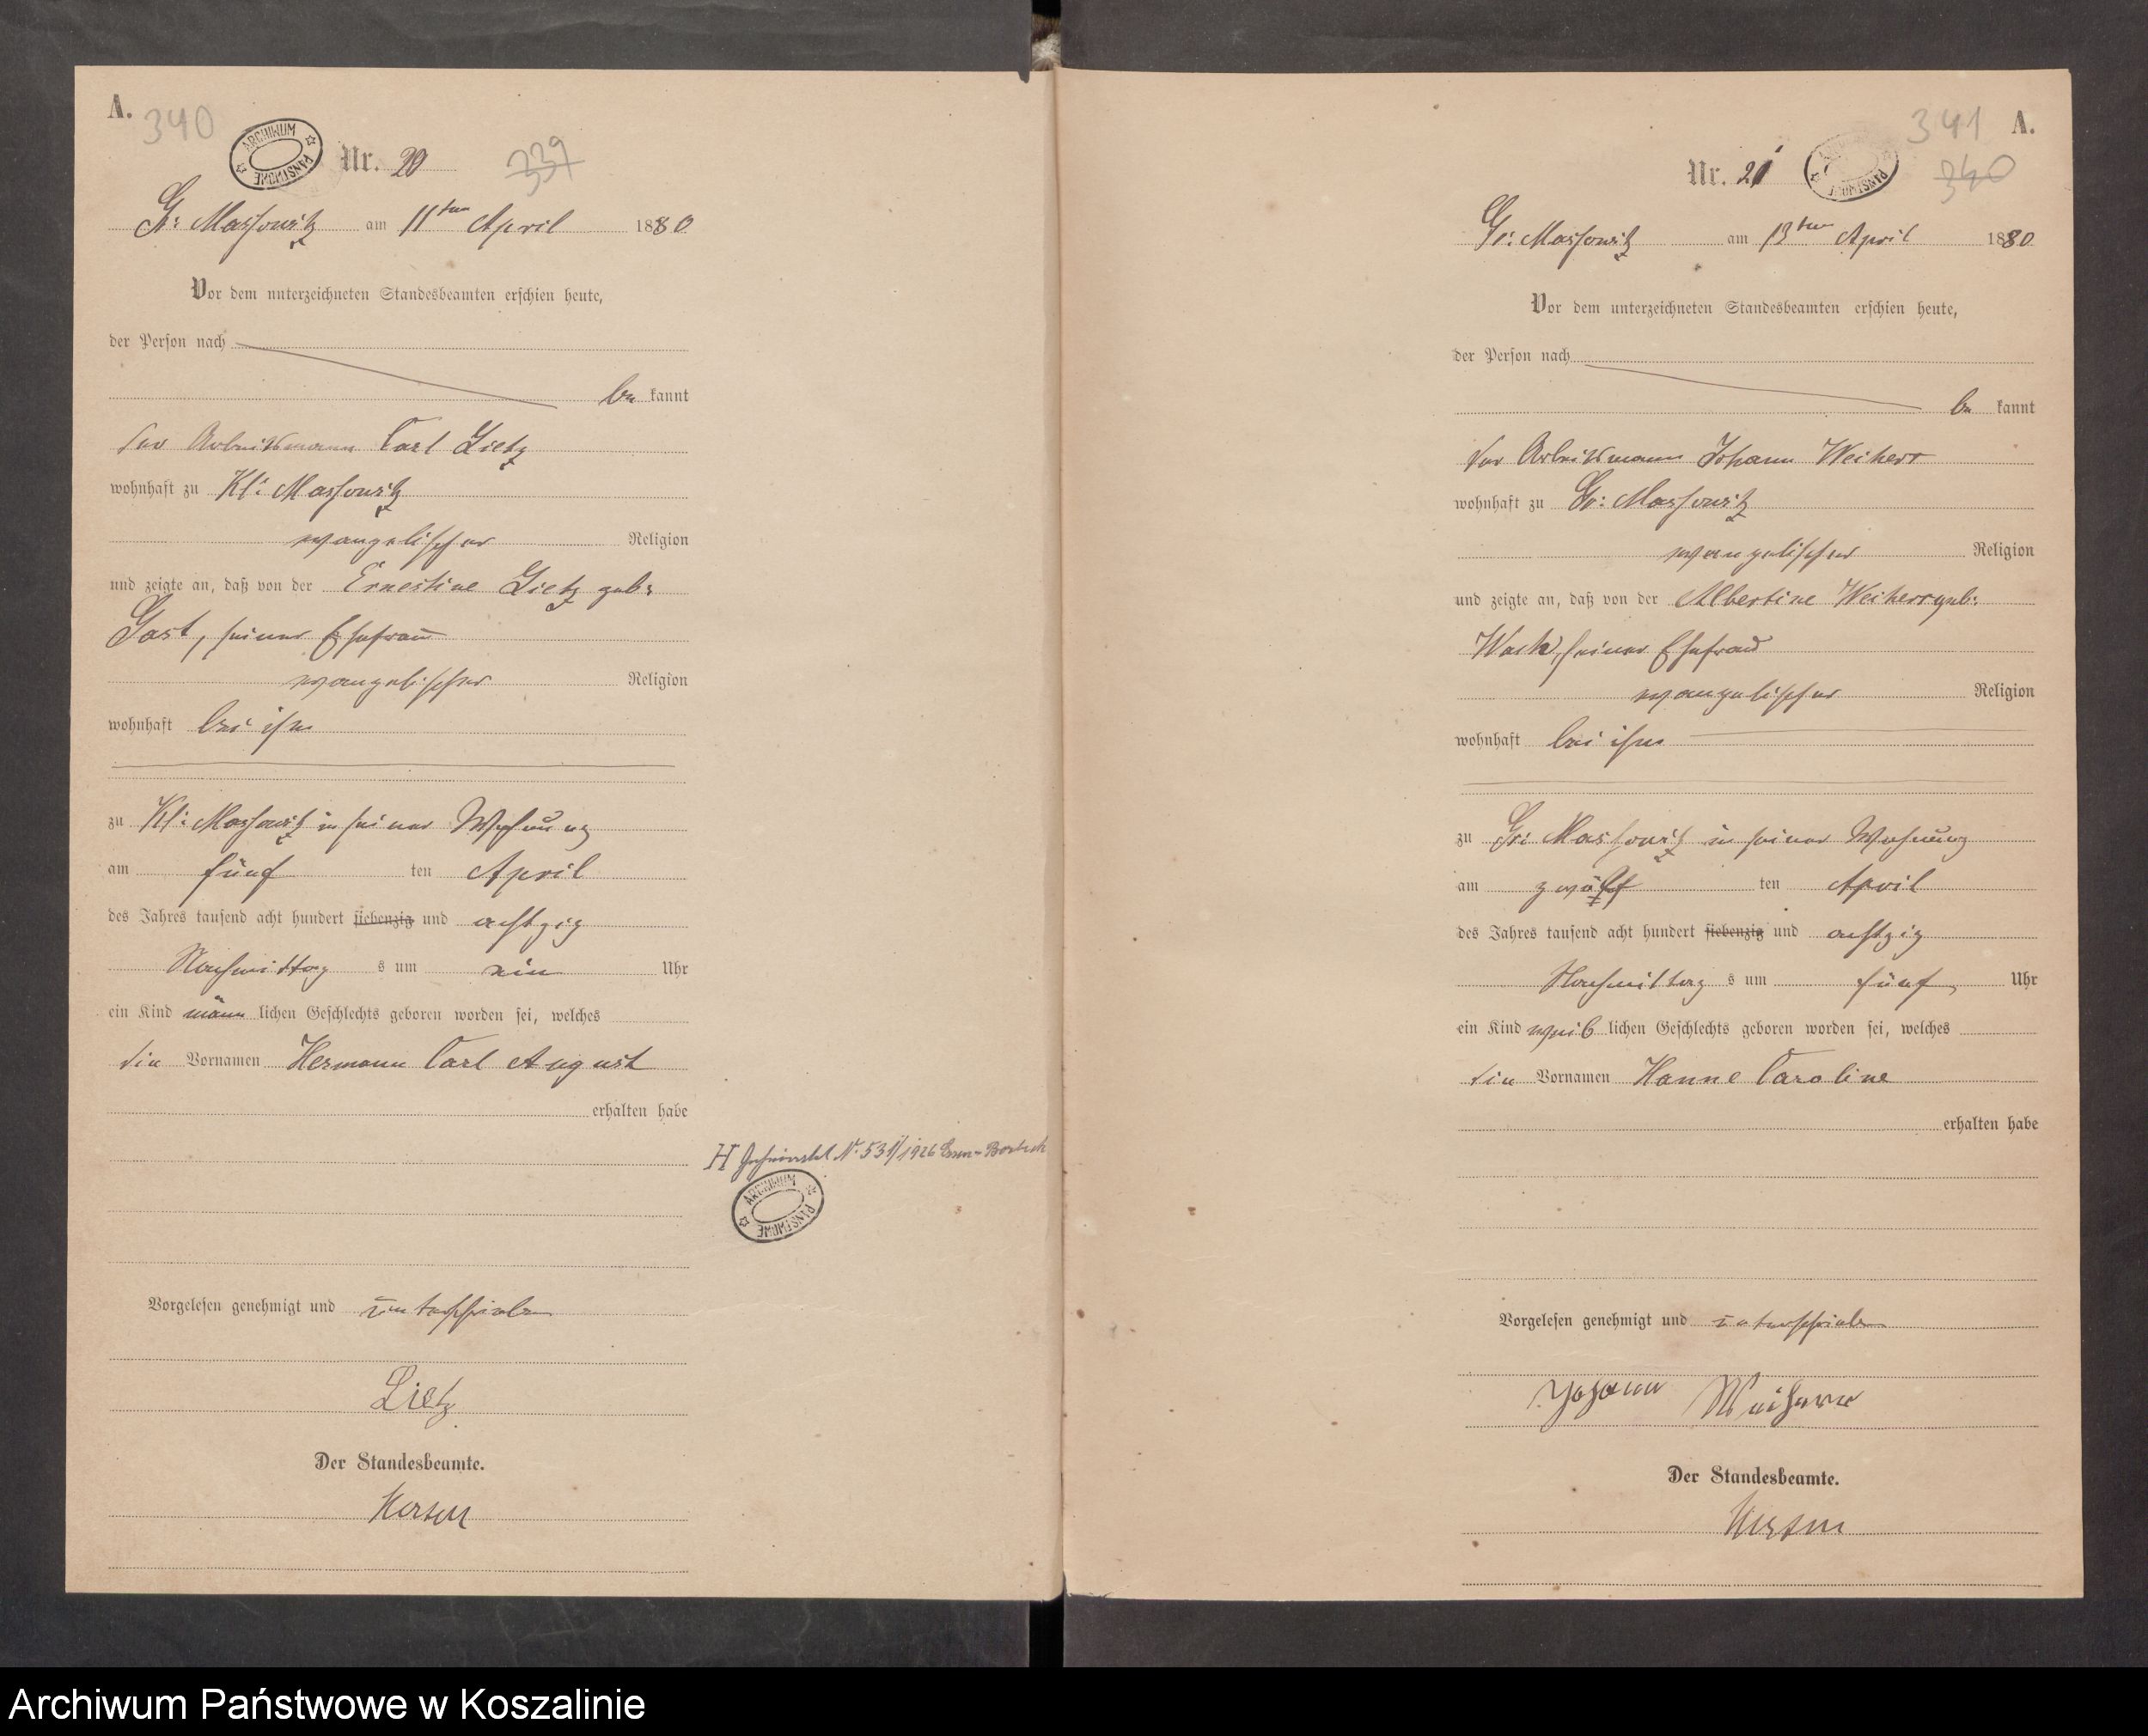 A.
340
ARCHIWUM PAŃSTWOWE
Nr. 20
339
Gr: Massowitz am 11ten April 1880
Vor dem unterzeichneten Standesbeamten erschien heute,
der Person nach
be kannt
der Arbeitsmann Carl Lietz
wohnhaft zu Kl: Massowitz
evangelischer Religion
und zeigte an, daß von der Ernestine Lietz geb:
Gast, seiner Ehefrau
evangelischer Religion
wohnhaft bei ihm
zu Kl: Massowitz in seiner Wohnung
am fünf ten April
des Jahres tausend acht hundert siebenzig und achtzig
Nachmittag s um ein Uhr
ein Kind männ lichen Geschlechts geboren worden sei, welches
die Vornamen Hermann Carl August
erhalten habe
H N. 531/1926 Essen-Borbeck
ARCHIWUM PAŃSTWOWE
Vorgelesen genehmigt und unterschrieben
Lietz
Der Standesbeamte.
Kersten
341 A.
Nr. 21
ARCHIWUM PAŃSTWOWE
340
Gr: Massowitz am 13ten April 1880
Vor dem unterzeichneten Standesbeamten erschien heute,
der Person nach
be kannt
der Arbeitsmann Johann Weiherr
wohnhaft zu Gr: Massowitz
evangelischer Religion
und zeigte an, daß von der Albertine Weiherr geb:
seiner Ehefrau
evangelischer Religion
wohnhaft bei ihm
zu Gr: Massowitz in seiner Wohnung
am zwölf ten April
des Jahres tausend acht hundert siebenzig und achtzig
Nachmittag s um fünf Uhr
ein Kind weib lichen Geschlechts geboren worden sei, welches
die Vornamen Hanne Caroline
erhalten habe
Vorgelesen genehmigt und unterschrieben
Johann Weiherr
Der Standesbeamte.
Kersten
Archiwum Państwowe w Koszalinie